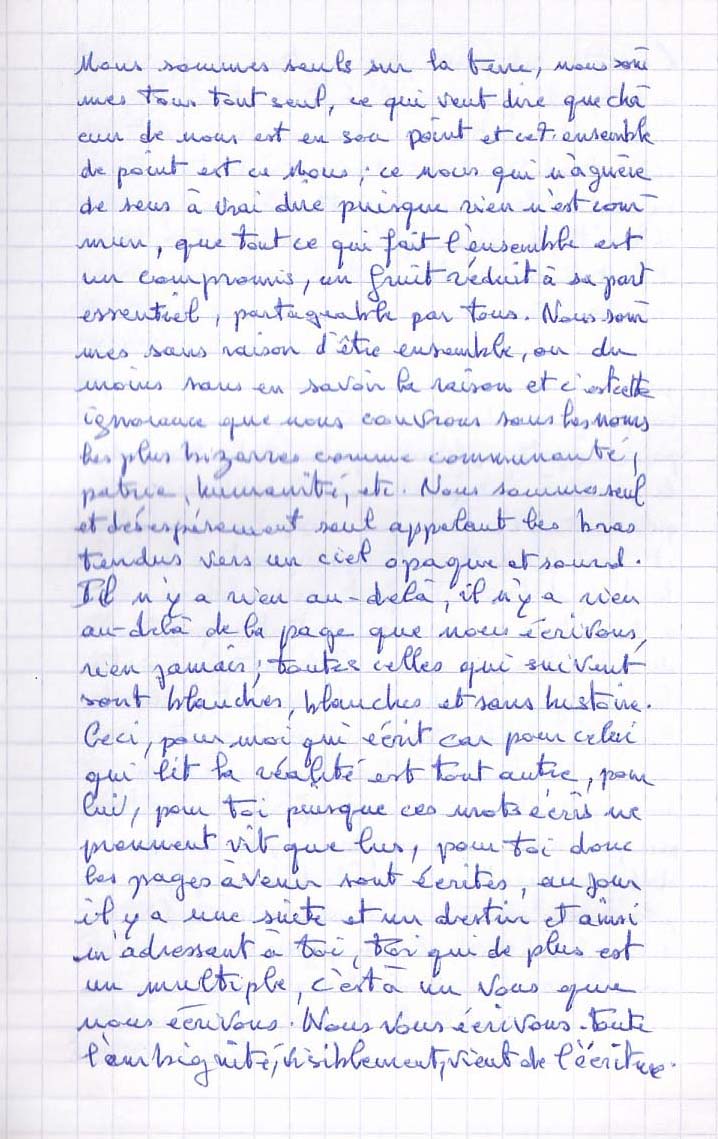 Nous sommes seuls sur la terre, nous som
mes tous tout seul, ce qui veut dire que cha
cun de nous est en son point et cet ensemble
de point est ce Nous ; ce nous qui n'a guère
de sens à vrai dire puisque rien n'est com
mun, que tout ce qui fait l'ensemble est
un compromis, un fruit réduit à sa part
essentiel, partageable par tous. Nous som
mes sans raison d'être ensemble, ou du
moins sans en savoir la raison et c'est cette
ignorance que nous couvrons sous les noms
les plus bizarres comme communauté,
patrie, humanité, etc. Nous sommes seul
et désespérement seul appelant les bras
tendus vers un ciel opaque et sourd.
Il n'y a rien au-delà, il n'y a rien
au-delà de la page que nous écrivons,
rien jamais ; toutes celles qui suivent
sont blanches, blanches et sans histoire.
Ceci, pour moi qui écrit car pour celui
qui lit la réalité est tout autre, pour
lui, pour toi puisque ces mots écris ne
prennent vit que lus, pour toi donc
les pages à venir sont écrites, au jour
il y a une suite et un destin et ainsi
m'adressant à toi, toi qui de plus est
un multiple, c'est à un Vous que
nous écrivons. Nous Vous écrivons. Toute
l'ambiguité, visiblement, vient de l'écriture.